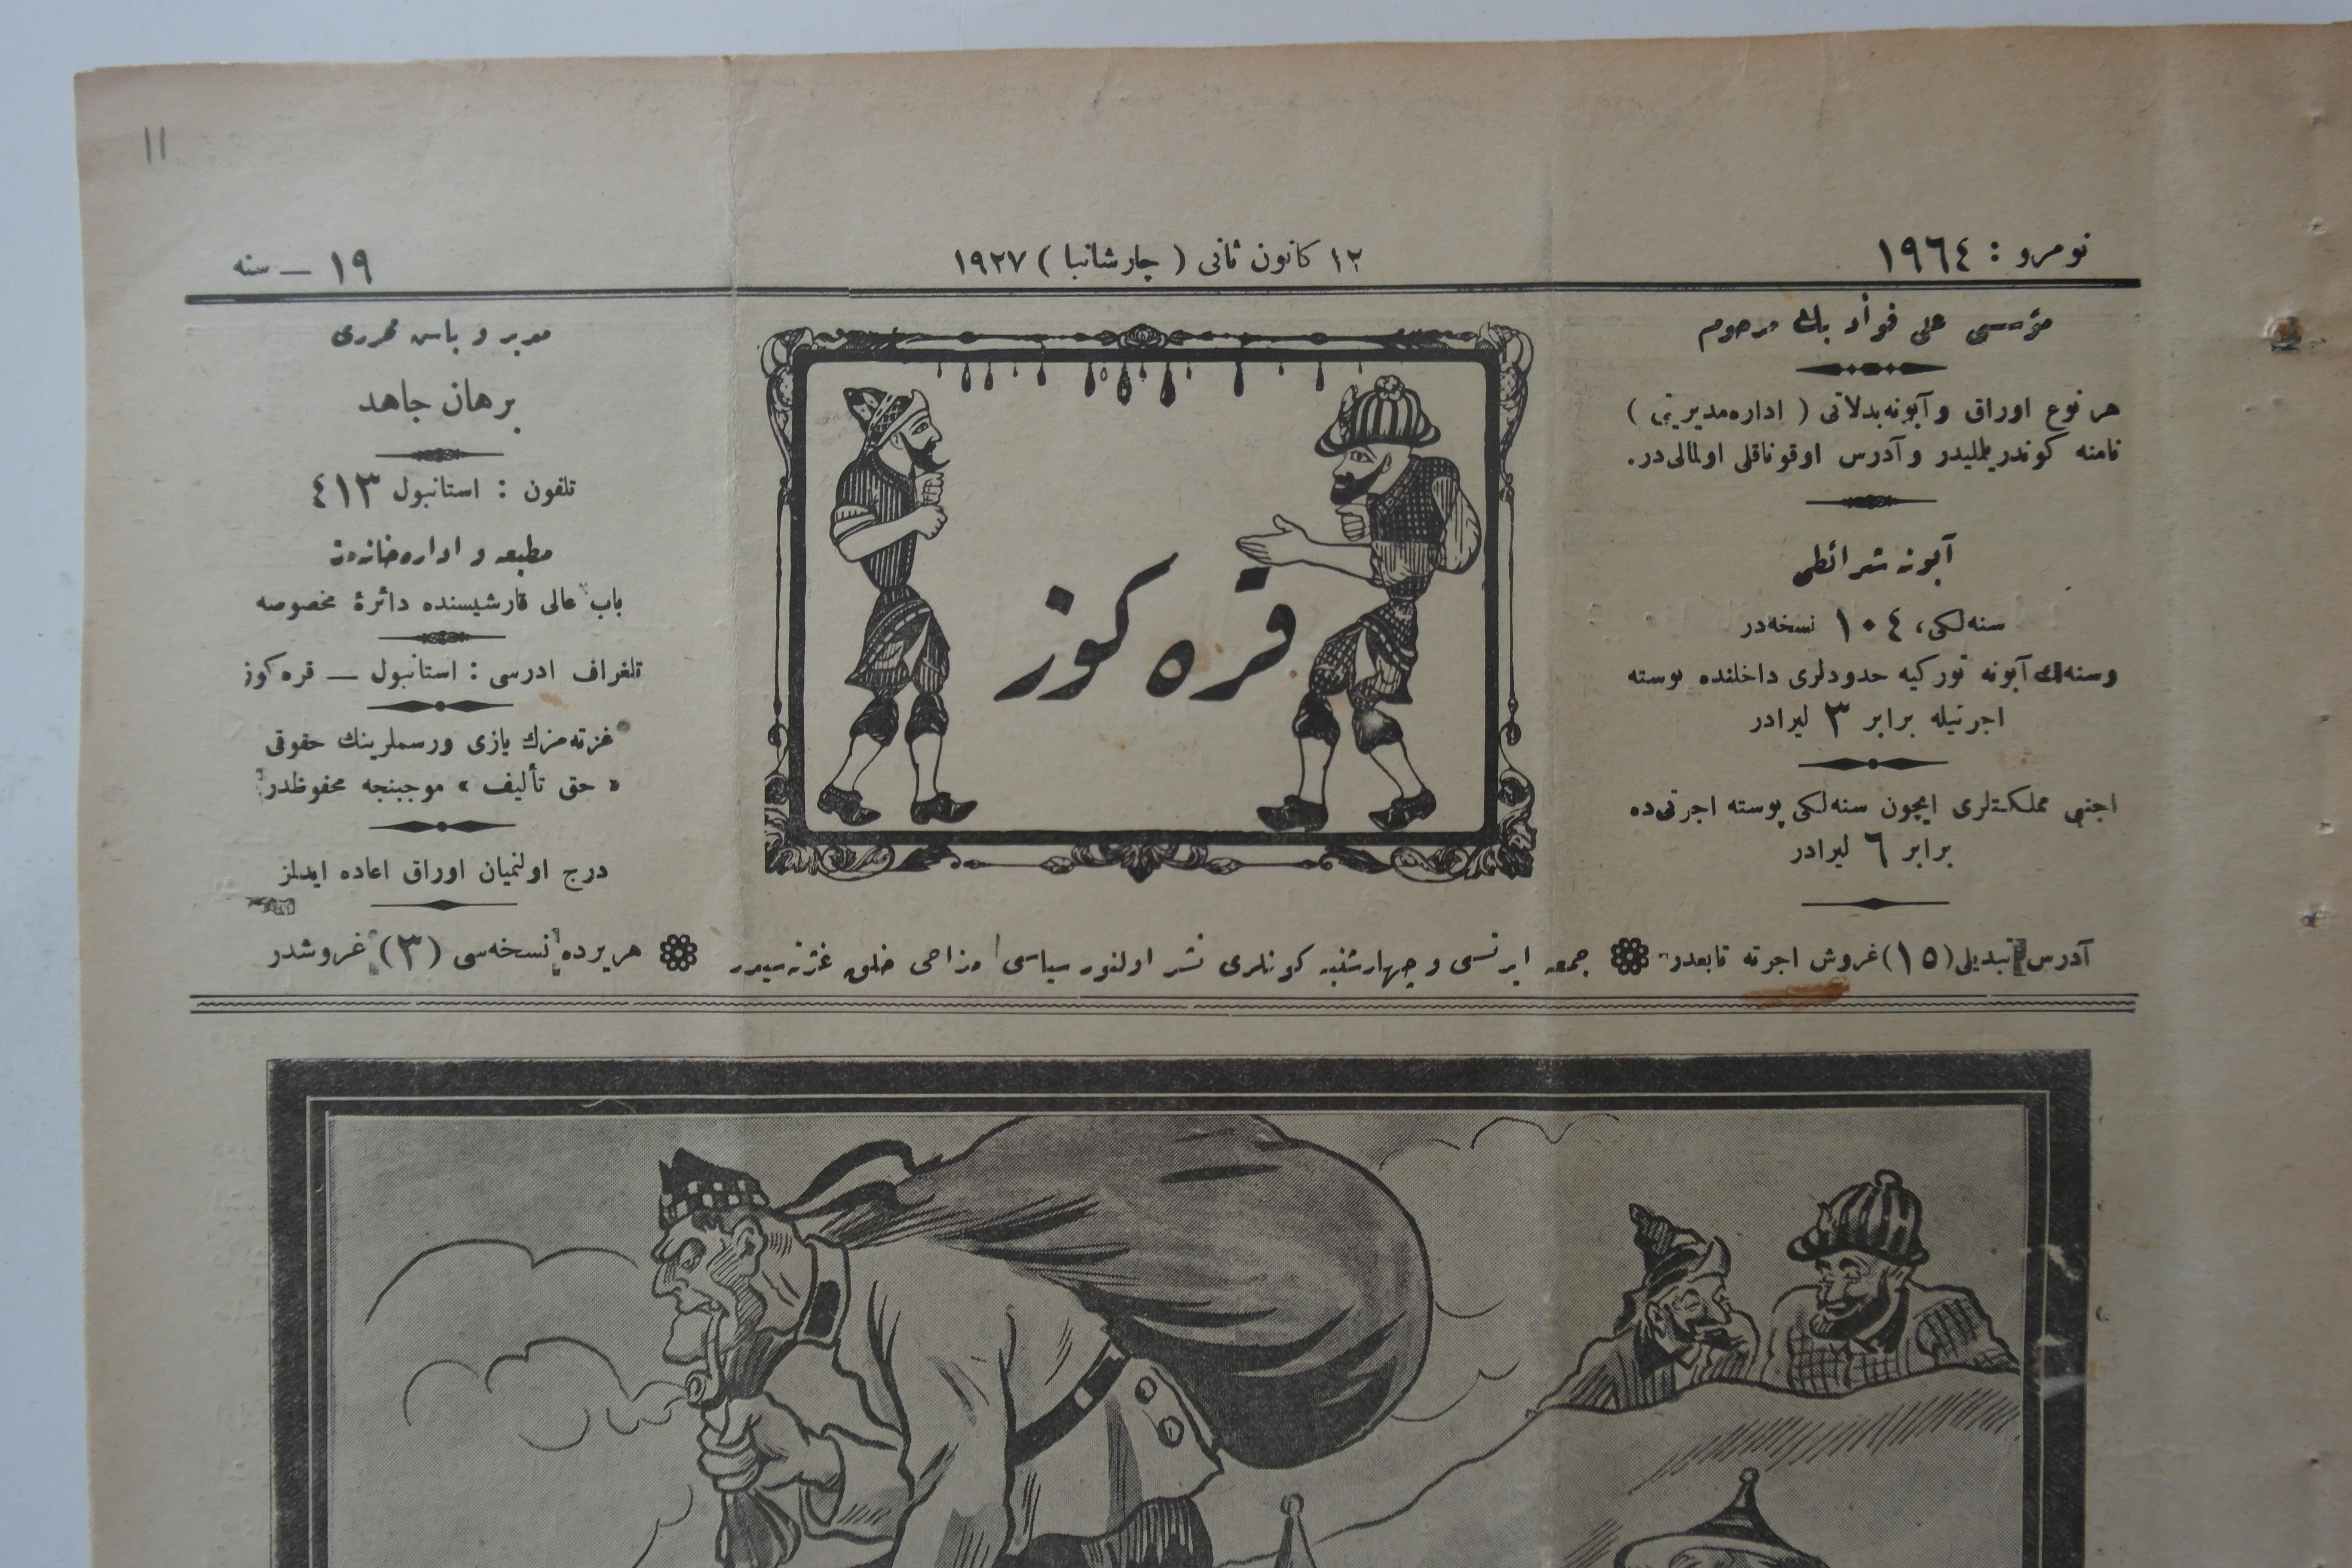 نومرو : ١٩٦٤
١٢ كانون ثانی ( چارشانبا ) ١٩٢٧
١٩ — سنه
مؤسسی علی فؤاد بك مرحوم
هر نوع اوراق و آبونه بدلاتی ( اداره مدیریتی )
نامنه كوندریلملیدر و آدرس اوقوناقلی اولمالی در.
آبونه شرائطی
سنه لكی، ١٠٤ نسخه در
وسنه لك آبونه توركیه حدودلری داخلنده پوسته
اجرتیله برابر ٣ لیرادر
اجنبی مملكتلری ایچون سنه لكی پوسته اجرتی ده
برابر ٦ لیرادر
قره كوز
مدیر و باش محرری
برهان جاهد
تلفون : استانبول ٤١٣
مطبعه و اداره خانه سی
باب عالی قارشیسنده دائرهٔ مخصوصه
تلغراف ادرسی : استانبول — قره كوز
غزته مزك یازی ورسملرینك حقوقی
« حق تألیف » موجبنجه محفوظدر
درج اولنمیان اوراق اعاده ایدلمز
آدرس تبدیلی (١٥) غروش اجرته تابعدر
جمعه ایرتسی و چهارشنبه كونلری نشر اولنور سیاسی مزاحی خلق غزته سیدر
هر یرده نسخه سی (٣) غروشدر
11